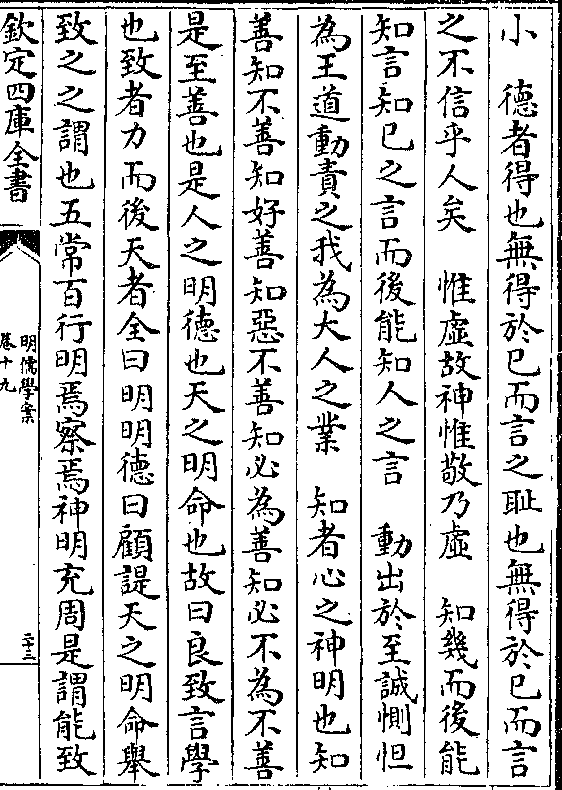 小　德者得也無得於已而言之耻也無得於已而言
之不信乎人矣　惟虛故神惟敬乃虛　知幾而後能
知言知已之言而後能知人之言　動出於至誠惻怛
為王道動責之我為大人之業　知者心之神明也知
善知不善知好善知惡不善知必為善知必不為不善
是至善也是人之明德也天之明命也故曰良致言學
也致者力而後天者全曰明明德曰顧諟天之明命舉
致之之謂也五常百行明焉察焉神明充周是謂能致
欽定四庫全書
明儒學案
卷十九
二十三